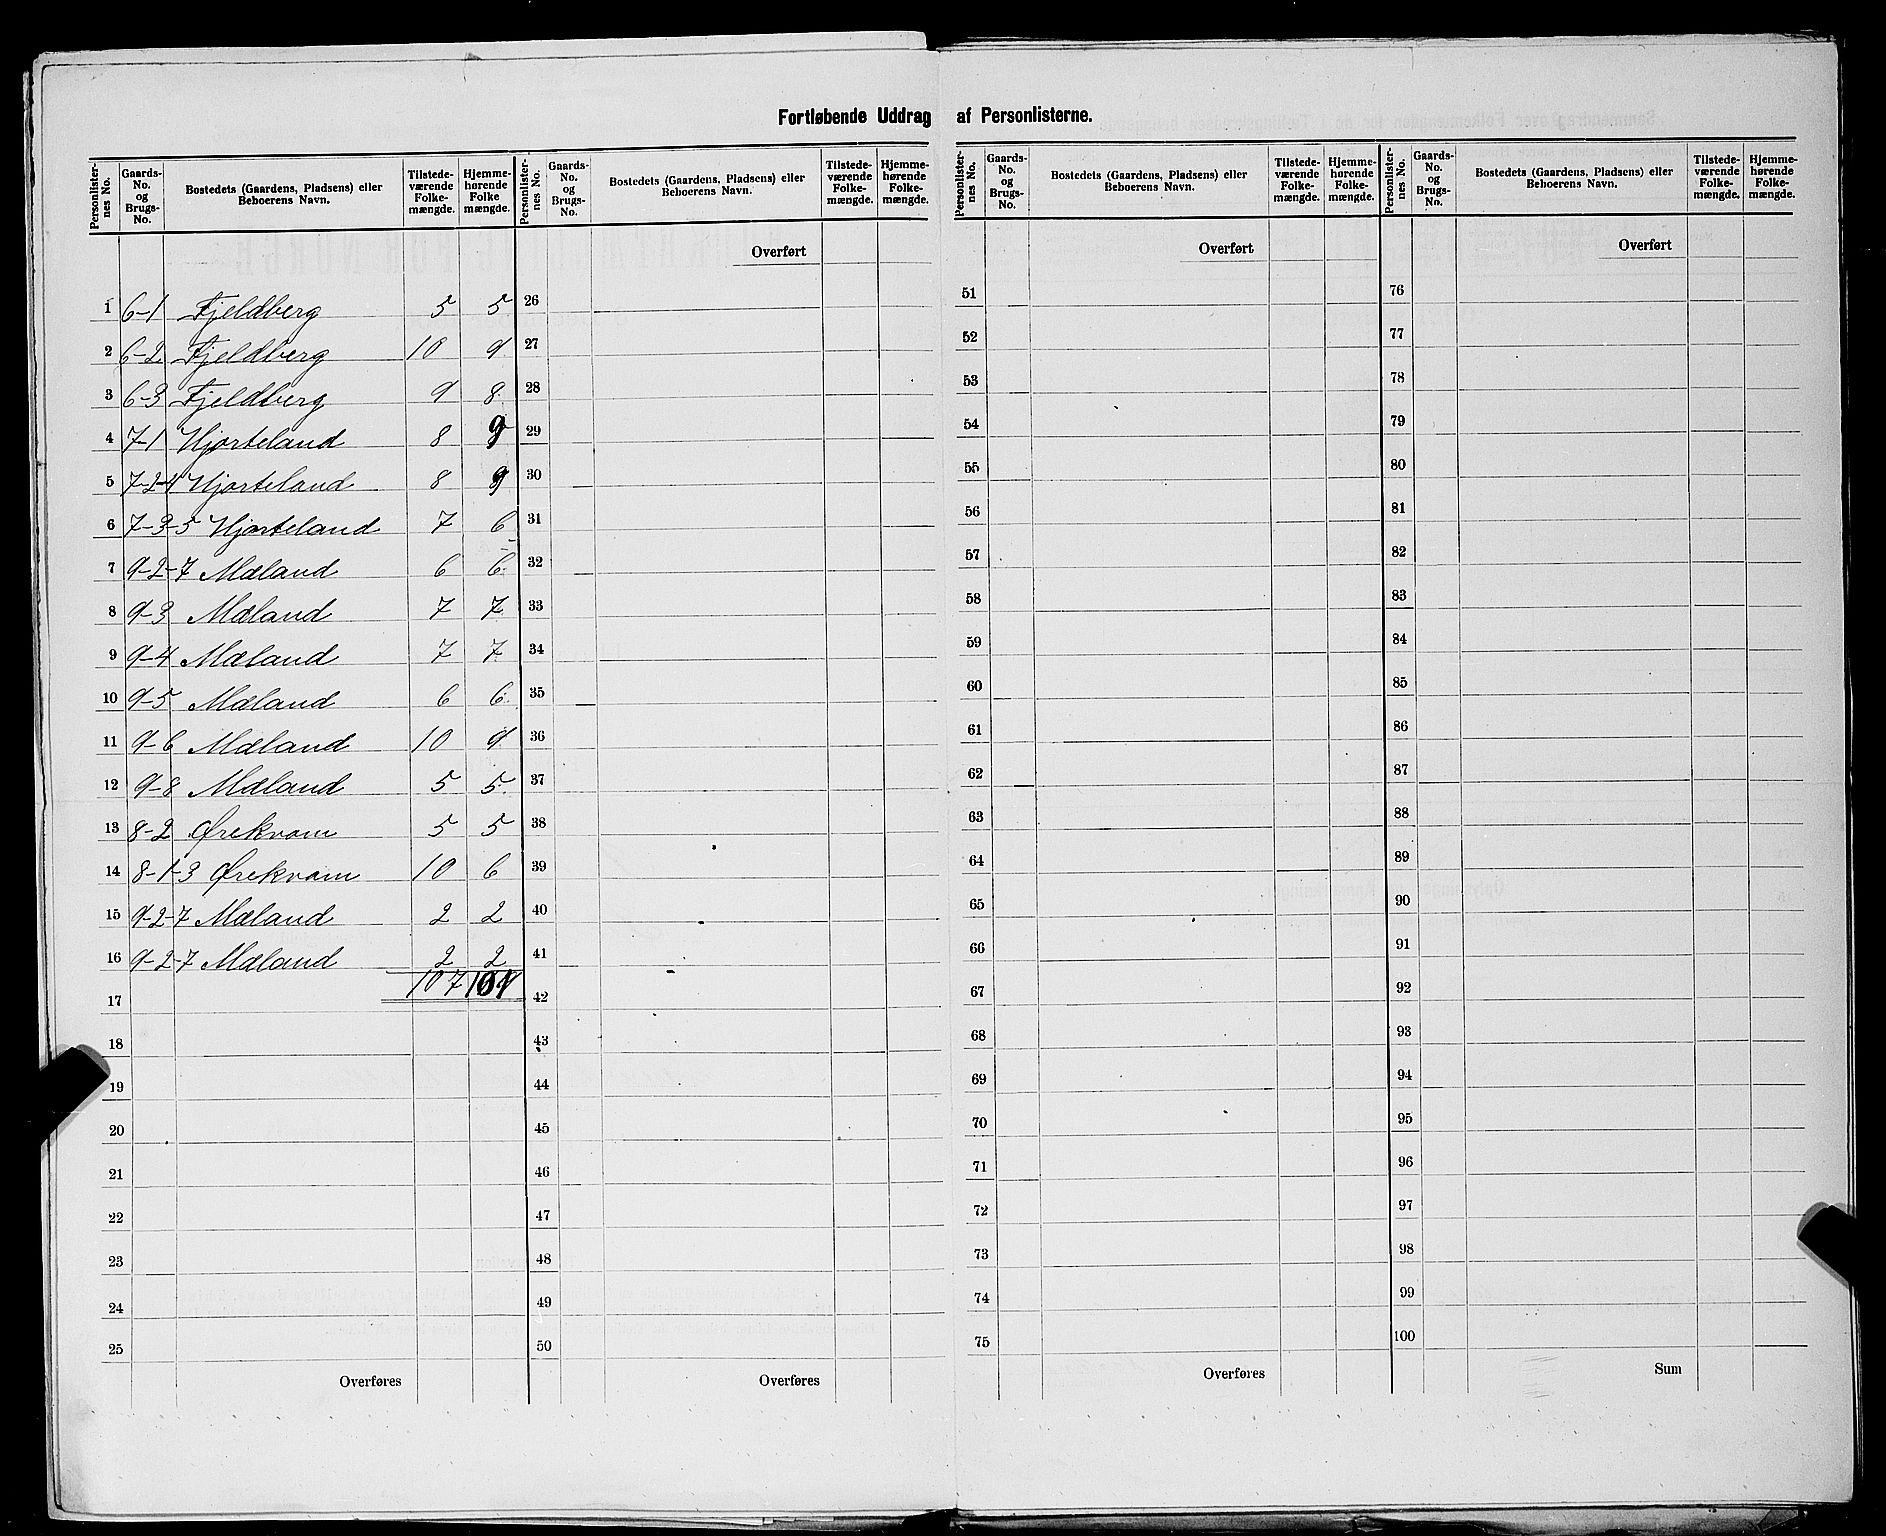 Fortløbende Uddrag af Personlisterne.
Personlister-nes No. | Gaards-No. og Brugs-No. | Bostedets (Gaardens, Pladsens) eller Beboerens Navn. | Tilstede-værende Folke-mængde. | Hjemme-hørende Folke mængde.
Personlister-nes No. | Gaards-No. og Brugs-No. | Bostedets (Gaardens, Pladsens) eller Beboerens Navn. | Tilstede-værende Folke-mængde. | Hjemme-hørende Folke-mængde.
Personlister-nes No. | Gaards-No. og Brugs-No. | Bostedets (Gaardens, Pladsens) eller Beboerens Navn. | Tilstede-værende Folke-mængde. | Hjemme-hørende Folke-mængde.
Personlister-nes No. | Gaards-No. og Brugs-No. | Bostedets (Gaardens, Pladsens) eller Beboerens Navn. | Tilstede-værende Folke-mængde. | Hjemme-hørende Folke-mængde.
1 6-1 Fjeldberg 5 5
2 6-2 Fjeldberg 10 9
3 6-3 Fjeldberg 9 8
4 7-1 Hjorteland 8 9
5 7-2-4 Hjorteland 8 9
6 7-3-5 Hjorteland 7 6
7 9-2-7 Mæland 6 6
8 9-3 Mæland 7 7
9 9-4 Mæland 7 7
10 9-5 Mæland 6 6
11 9-6 Mæland 10 9
12 9-8 Mæland 5 5
13 8-2 Ørekvam 5 5
14 8-1-3 Ørekvam 10 6
15 9-2-7 Mæland 2 2
16 9-2-7 Mæland 2 2
107 101
17
18
19
20
21
22
23
24
25
Overføres
Overført
26
27
28
29
30
31
32
33
34
35
36
37
38
39
40
41
42
43
44
45
46
47
48
49
50
Overføres
Overført
51
52
53
54
55
56
57
58
59
60
61
62
63
64
65
66
67
68
69
70
71
72
73
74
75
Overføres
Overført
76
77
78
79
80
81
82
83
84
85
86
87
88
89
90
91
92
93
94
95
96
97
98
99
100
Sum